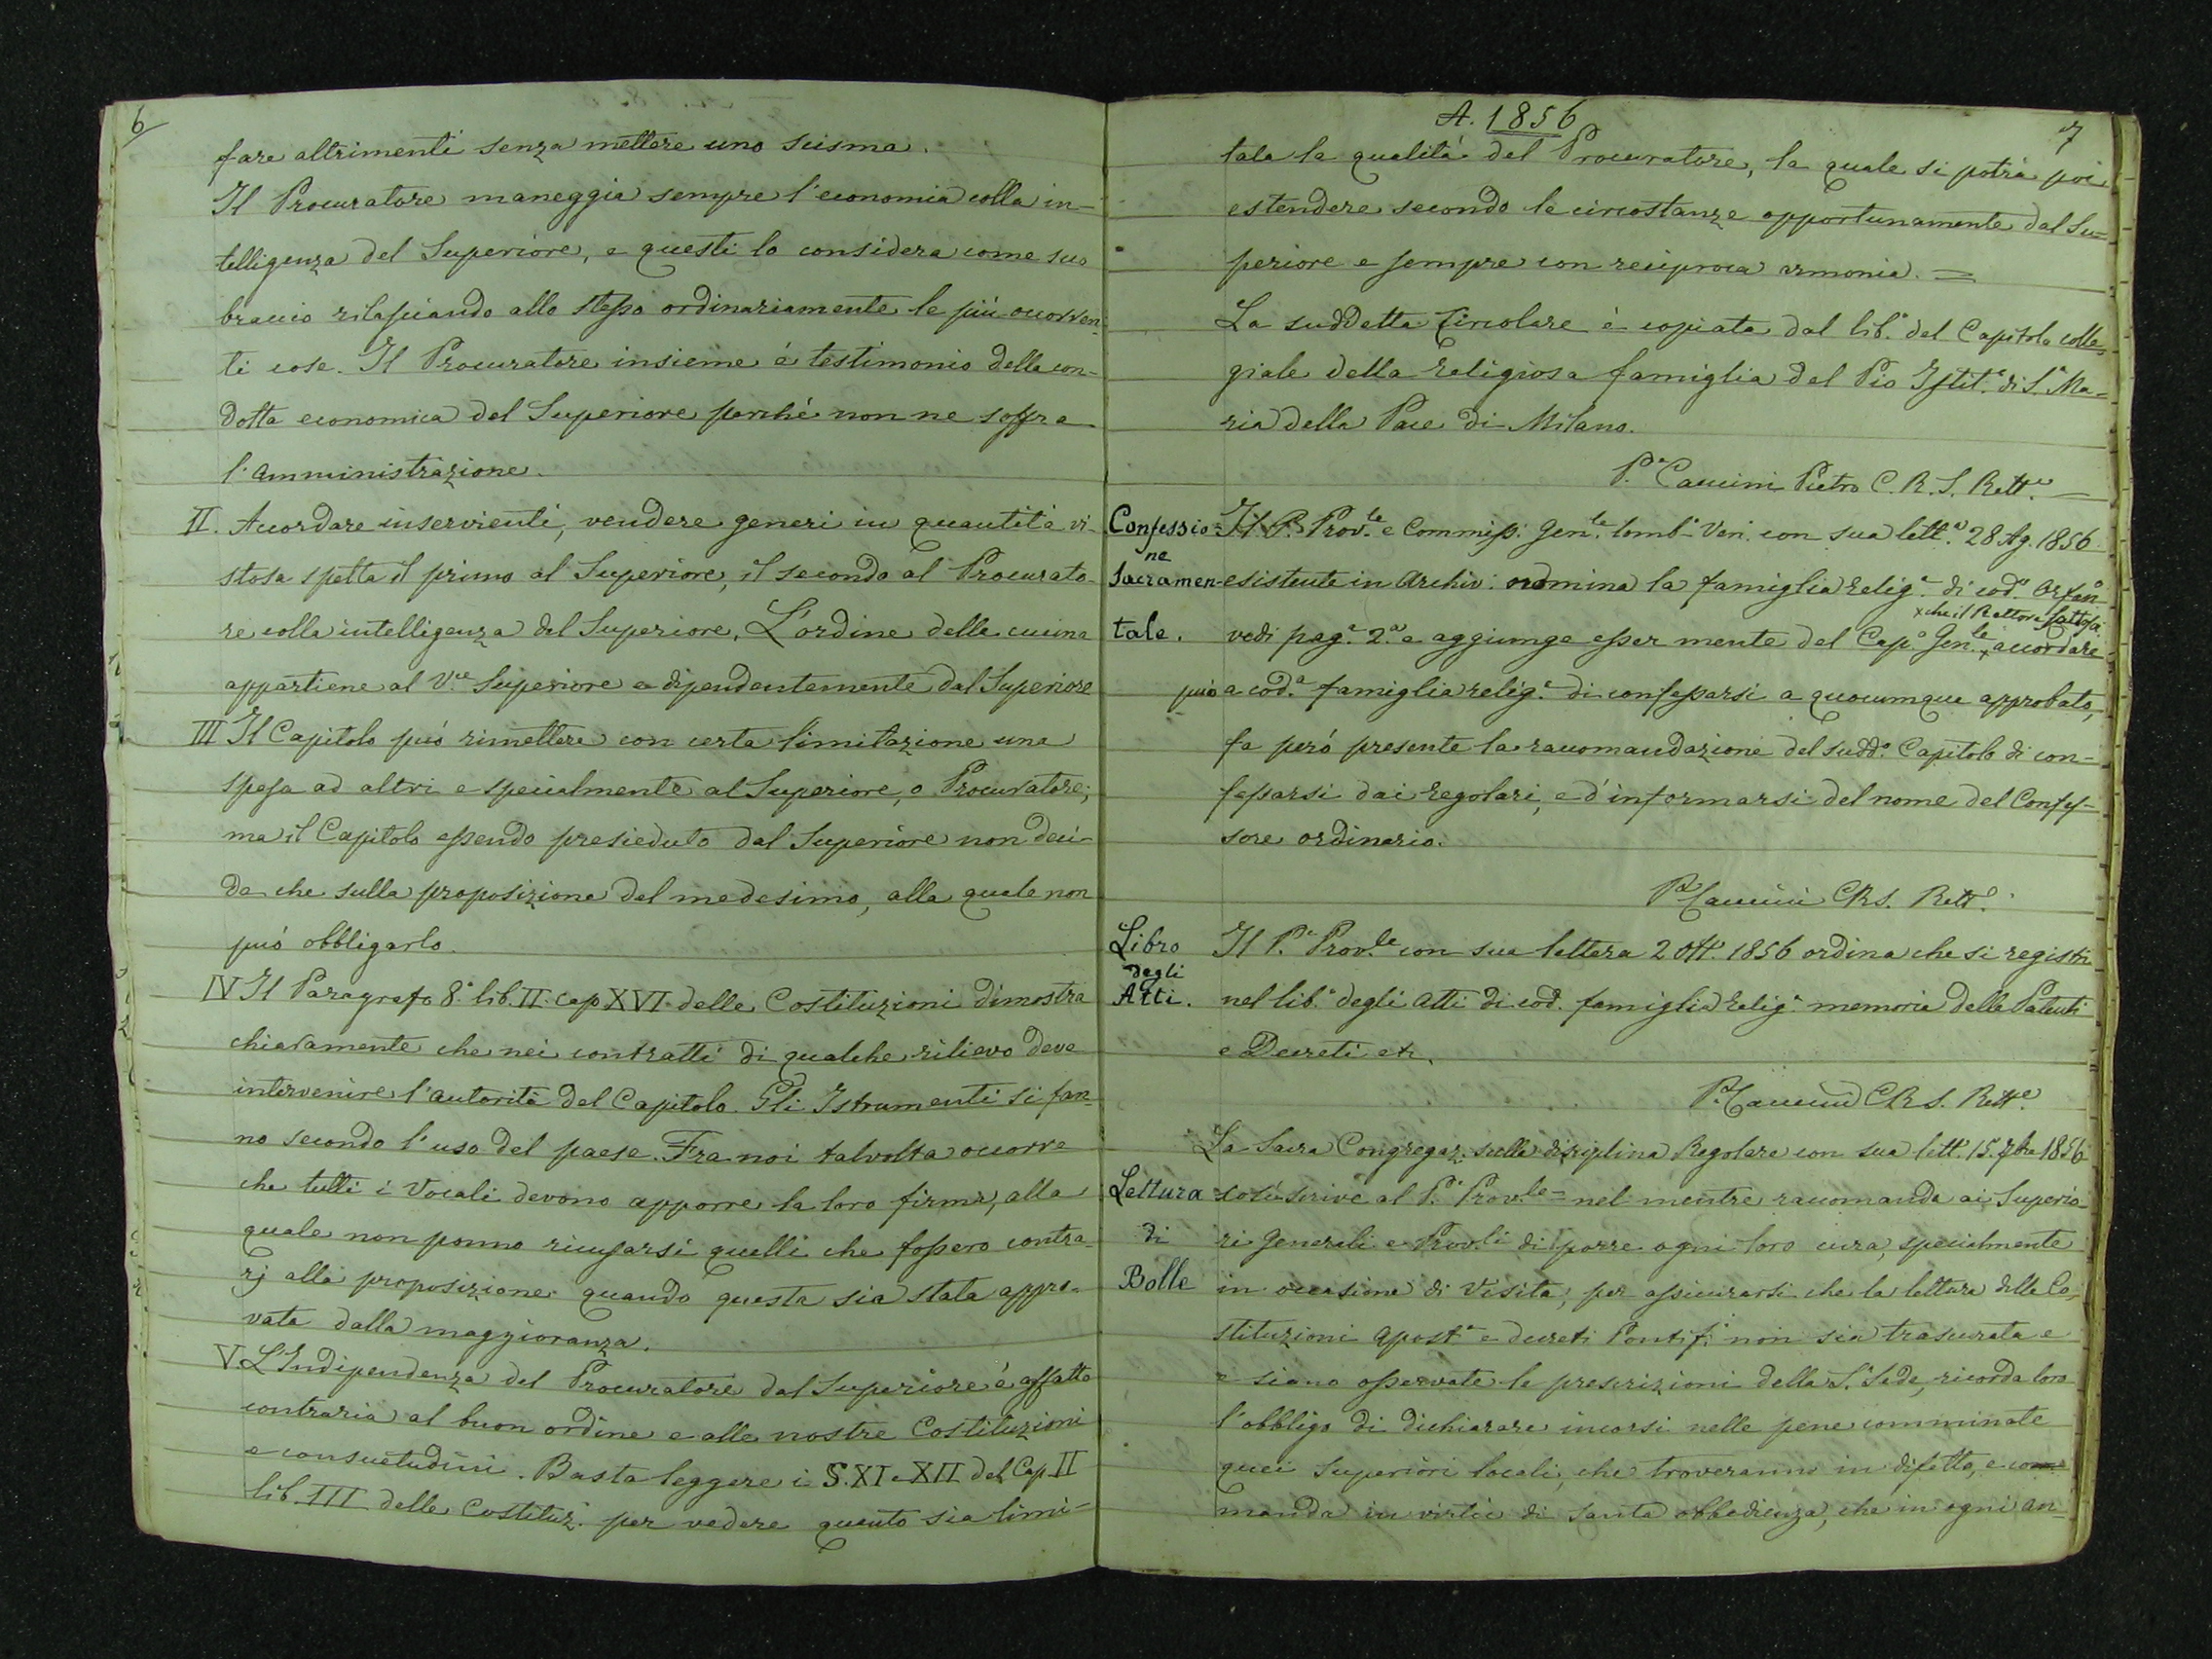 6
fare altrimenti senza mettere uno scisma.
Il Procuratore maneggia sempre l'economia colla in-
telligenza del Superiore, e questi lo considera come suo
braccio rilasciando allo stesso ordinariamente le più occorren-
ti cose. Il Procuratore insieme è testimonio della con-
dotta economica del Superiore perché non ne soffra
l'amministrazione.
II. Accordare inservienti, vendere generi in quantità vi-
stosa spetta il primo al Superiore, il secondo al Procurato-
re colla intelligenza del Superiore. L'ordine della cucina
appartiene al V.ce Superiore e dipendentemente dal Superiore
III Il Capitolo può rimettere con certa limitazione una
spesa ad altri e specialmente al Superiore, o Procuratore;
ma il Capitolo essendo presieduto dal Superiore non deci-
da che sulla proposizione del medesimo, alla quale non
può obbligarlo.
IV Il Paragrafo 8.° lib. II. Cap XVI delle Costituzioni dimostra
chiaramente che nei contratti di qualche rilievo deve
intervenire l'autorità del Capitolo. Gli Istrumenti si fan-
no secondo l'uso del paese. Fra noi talvolta occorre
che tutti i Vocali devono apporre la loro firma, alla
quale non ponno ricusarsi quelli che fossero contra-
rj alla proposizione quando questa sia stata appro-
vata dalla maggioranza.
V. L'Indipendenza del Procuratore dal Superiore è affatto
contraria al buon ordine e alle nostre Costituzioni
e consuetudini. Basta leggere i §. XI e XII del Cap. II
lib. III delle Costituz. per vedere quanto sia limi-
A. 1856
7
tata la qualità del Procuratore, la quale si potrà poi
estendere secondo le circostanze opportunamente dal Su-
periore e sempre con reciproca armonia. =
La suddetta Circolare è copiata dal lib.° del Capitolo colle-
giale della religiosa famiglia del Pio Istit.° di S.a Ma-
ria della Pace di Milano.
P.e Caccini Pietro C. R. S. Rett.e
Confessio- Il P. Prov.le e Commiss. Gen.le Lomb.° Ven. con sua lett.a 28 Ag. 1856
ne
Sacramen- esistente in Archiv: nomina la famiglia relig.a di cod.° Orfan.°
x che il Rettore
tale. vedi pag.a 2.a e aggiunge esser mente del Cap.° Gen.le x accordare
può a cod.a famiglia relig.a di confessarsi a quocumque approbato,
fa però presente la raccomandazione del sudd.° Capitolo di con-
fessarsi dai regolari, e d'informarsi del nome del Confes-
sore ordinario.
P. Caccini CRS. Rett.e
Libro Il P.e Prov.le con sua lettera 2 Ott. 1856 ordina che si registri
degli
Atti. nel lib.° degli Atti di cod. famiglia relig.a memoria delle Patenti
e Decreti etc.
P. Caccini CRS. Rett.e
La Sacra Congregaz. sulla disciplina Regolare con sua lett. 15. 7bre 1856
Lettura così scrive al P.e Prov.le = nel mentre raccomanda ai Superio-
di ri Generali e Prov.li di porre ogni loro cura, specialmente
Bolle in occasione di Visita, per assicurarsi che la lettura delle Co-
stituzioni Apost.e e decreti Pontif.i non sia trascurata e
e siano osservate le prescrizioni della S.a Sede, ricorda loro
l'obbligo di dichiarare incorsi nelle pene comminate
quei Superiori locali, che troveranno in difetto, e co
manda in virtù di Santa obbedienza, che in ogni an-